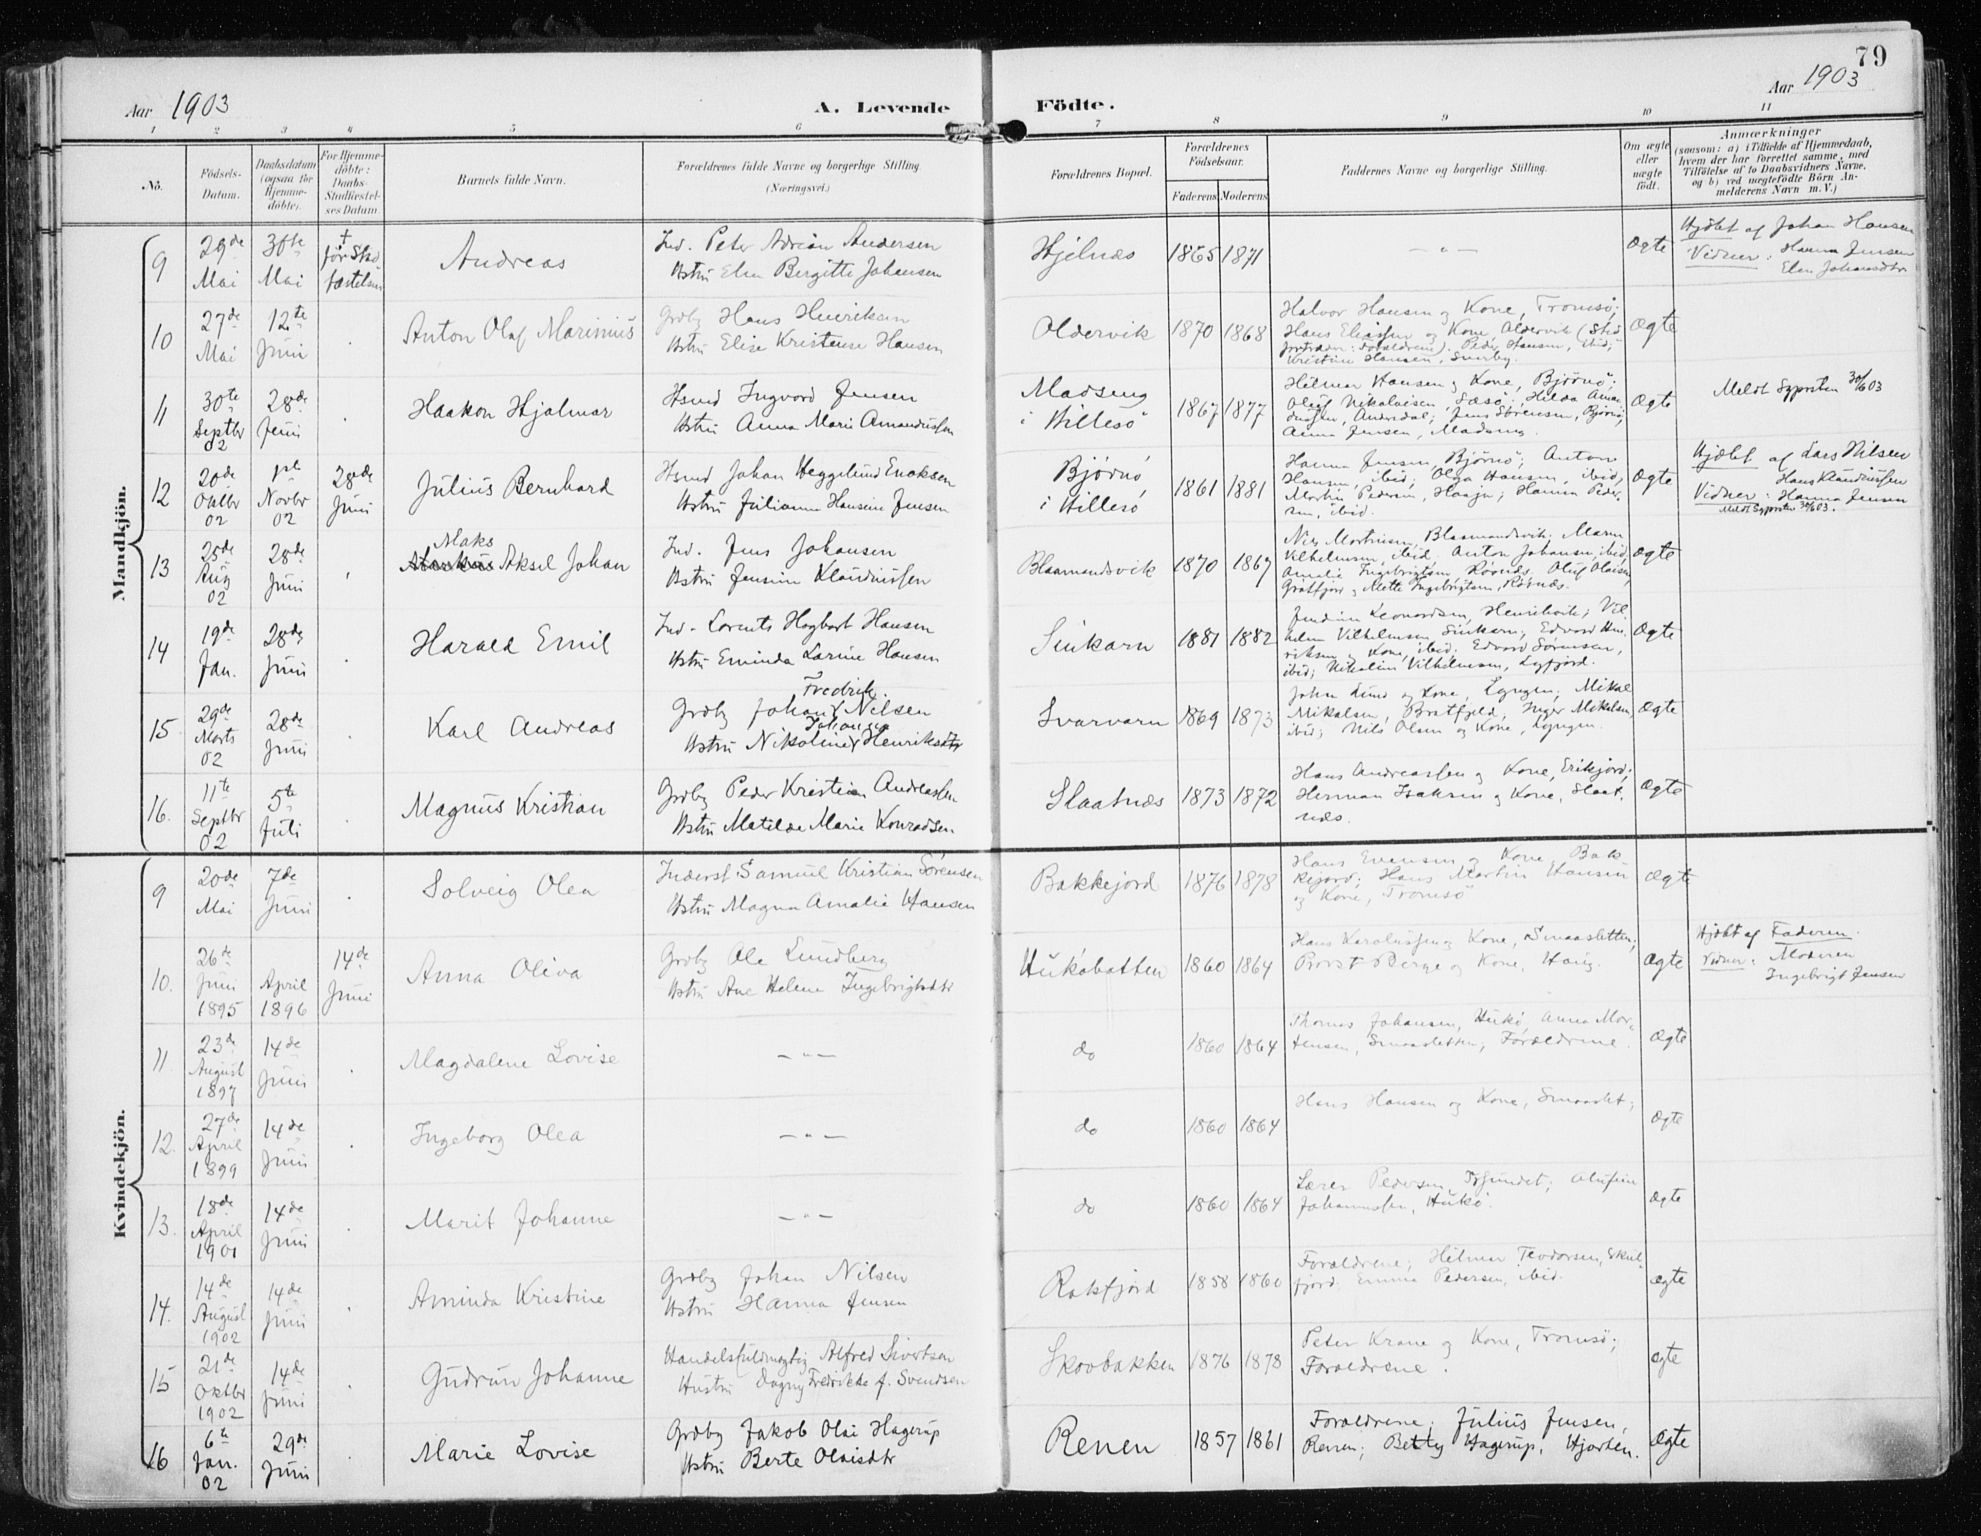 79
Aar 1903
A. Levende Födte.
Aar 1903
1 2 3 4 5 6 7 8 9 10 11
No.
Födsels-
Datum.
Daabsdatum
(ogsaa for
Hjemme-
döbte).
For Hjemme-
döbte:
Daabs-
Stadfæstel-
ses Datum
Barnets fulde Navn.
Forældrenes fulde Navne og borgerlige Stilling.
(Næringsvei.)
Forældrenes Bopæl.
Forældrenes
Födselsaar.
Faderens
Moderens
Faddernes Navne og borgerlige Stilling.
Om ægte
eller
uægte
født.
Anmærkninger
(saasom: a) i Tilfælde af Hjemmedaab,
hvem der har forrettet samme, med
Tilföielse af to Daabsvidners Navne,
og b) ved uægtefödte Börn An-
melderens Navn m. V.)
Mandkjön.
9
29de
Mai
30te
Mai
+
før Stad
fæstelsen
Andreas
Ind. Peter Adrian Andersen
Hstru Elen Bergitte Johansen
Hjelnæs
1865 1871
— " —
Ægte
Hjdbt af Johan Hansen
Vidner: Hanna Jensen
Elen Johansdtr
10
27de
Mai
12te
Juni
Anton Olaf Marinius
Grdbg Hans Henriksen
Hstru Elise Kristense Hansen
Oldervik
1870 1868
Halvor Hansen og Kone, Tromsø;
Hans Eliassen og Kone, Oldervik (Sted
fortrædere: Forældrene). Peder Hansen, ibid;
Kristine Hansen,
Ægte
11
30te
Septbr
02
28de
Juni
Haakon Hjalmar
Hsmd Ingvard Jensen
Hstru Anna Marie Amandussen
Madseng
i Hillesö
1867 1877
Hilmar Hansen og Kone, Bjørnø;
Oluf Nikolaisen, Sæsø; Hilda Aman
dussen, Andersdal; Jens Sörensen, Bjørnø;
Anna Jensen, Madseng.
Ægte
Meldt Sygprsten 30/6 03
12
20de
Oktbr
02
1ste
Novbr
02
28de
Juni
Julius Bernhard
Hsmd Johan Heggelund Enoksen
Hstru Julianna Hansine Jensen
Bjørnø,
i Hillesö
1861 1881
Hanna Jensen, Bjørnø; Anton
Hansen, ibid; Olga Hansen, ibid;
Martin Pedersen, Haaja; Hanna Peder
sen, ibid.
Ægte
Hjdbt af Lars Nilsen
Hans Klaudiussen
Vidner: Hanna Jensen
Meldt Sygprsten 30/6 03.
13
25de
Aug
02
28de
Juni
Maks
Aksel Johan
Ind. Jens Johansen
Hstru Jensine Klaudiussen
Blaamandsvik
1870 1867
Nils Mortensen, Blaamandsvik; Maren
Vilhelmsen, ibid. Anton Johansen, ibid,
Amalie Ingebrigtsen, Røsnes, Oluf Olaisen,
Grøtfjord og Mette Ingebrigtsen, Røsnæs.
Ægte
14
19de
Jan.
28de
Juni
Harald Emil
Ind. Lorents Hagbart Hansen
Hstru Eminda Larine Hansen
Sinkarn
1881 1882
Leonardsen, Henrikvik; Vil
helm Vilhelmsen, Sinkarn; Edvard Hen
riksen og Kone, ibid; Edvard Sørensen,
ibid; Nikoline Vilhelmsen, Lyfjord.
Ægte
15
29de
Marts
02
28de
Juni
Karl Andreas
Fredrik
Grdbg Johan Nilsen
Johanna
Hstru Nikoline Henriksdtr
Svarvarn
1869 1873
Johan Lund og Kone, Lyngen; Mikal
Mikalsen, Bratfjeld, Inger Mikalsen,
ibid; Nils Olsen og Kone, Lyngen.
Ægte
16.
11te
Septbr
02
5te
Juli
Magnus Kristian
Grdbg Peder Kristian Andreassen
Hstru Matilde Marie Konradsen
Slaatnæs
1873 1872
Hans Andreassen og Kone, Erikjord;
Herman Isaksen og Kone, Slaat-
næs.
Ægte
Kvindekjön.
9
20de
Mai
7de
Juni
Solveig Olea
Inderst Samuel Kristian Sørensen
Hstru Magna Amalie Hansen
Bakkejord
1876 1878
Hans Evensen og Kone, Bak-
kejord; Hans Martin Hansen
og Kone, Tromsö
Ægte
10.
26de
Juni
1895
April
1896
14de
Juni
Anna Oliva
Grdbg Ole Lundberg
Hstru Ane Helene Ingebrigtsdtr
Hukøbotten
1860 1864
Hans Karolussen og Kone, Smaasletten;
Provst Berge og Kone,
Ægte
Hjdbt af Faderen.
Vidner: Moderen
Ingebrigt Jensen
11.
23de
August
1897
14de
Juni
Magdalene Lovise
— " —
do
1860 1864
Thomas Johansen, Hukø, Anna Mor-
tensen, Smaasletten, Forældrene.
Ægte
12.
27de
April
1899
14de
Juni
Ingeborg Olea
— " —
do
1860 1864
Hans Hansen og Kone, Smaaslet;
Ægte
13.
18de
April
1901
14de
Juni
Marit Johanne
— " —
do
1860 1864
Lærer Pedersen, Olufine
Johannessen, Hukö.
Ægte
14.
14de
August
1902
14de
Juni
Aminda Kristine
Grdbg Johan Nilsen
Hstru Hanna Jensen
Rakfjord
1858 1860
Forældrene; Hilmar Teodorsen, Skul-
fjord. Emma Pedersen, ibid.
Ægte
15
21de
Oktbr
1902
14de
Juni
Gudrun Johanne
Handelsfuldmægtig Alfred Sivertsen
Hustru Dagny Fredrikke f. Svendsen
Skovbakken
1876 1878
Peter Krane og Kone, Tromsø;
Forældrene.
Ægte
16
6te
Jan.
02
29de
Juni
Marie Lovise
Grdbg Jakob Olai Hagerup
Hstru Berte Olaisdtr
Renen
1857 1861
Forældrene; Julius Jensen,
Renen; Betty Hagerup, Hjorten.
Ægte